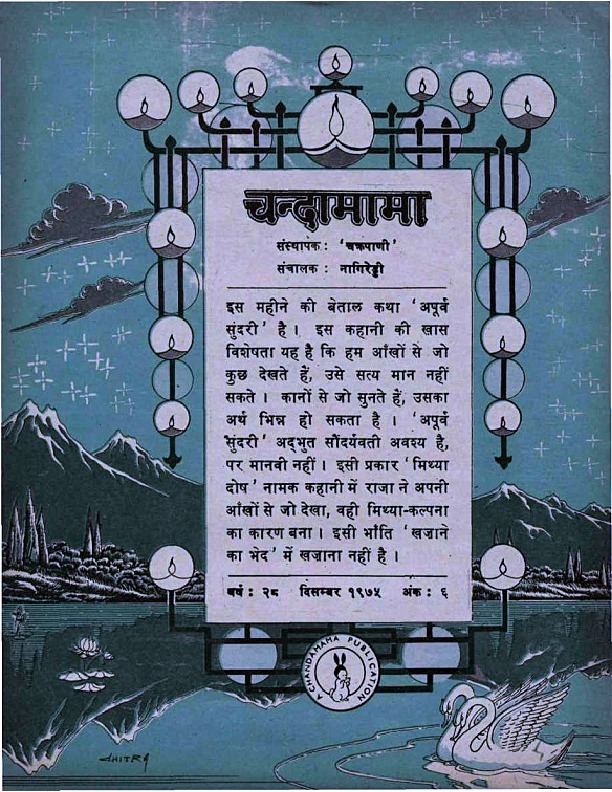 चन्दामामा
संस्थापक : 'चक्रपाणी'
संचालक : नागिरेड्डी
इस महीने की बेताल कथा 'अपूर्व
सुंदरी' है । इस कहानी की खास
विशेषता यह है कि हम आँखों से जो
कुछ देखते हैं, उसे सत्य मान नहीं
सकते । कानों से जो सुनते हैं, उसका
अर्थ भिन्न हो सकता है । 'अपूर्व
सुंदरी' अद्भुत सौंदर्यवती अवश्य है,
पर मानवी नहीं । इसी प्रकार 'मिथ्या
दोष' नामक कहानी में राजा ने अपनी
आँखों से जो देखा, वही मिथ्या-कल्पना
का कारण बना । इसी भाँति 'खज़ाने
का भेद' में खज़ाना नहीं है ।
वर्ष : २८ दिसम्बर १९७५ अंक : ६
A CHANDAMAMA PUBLICATION